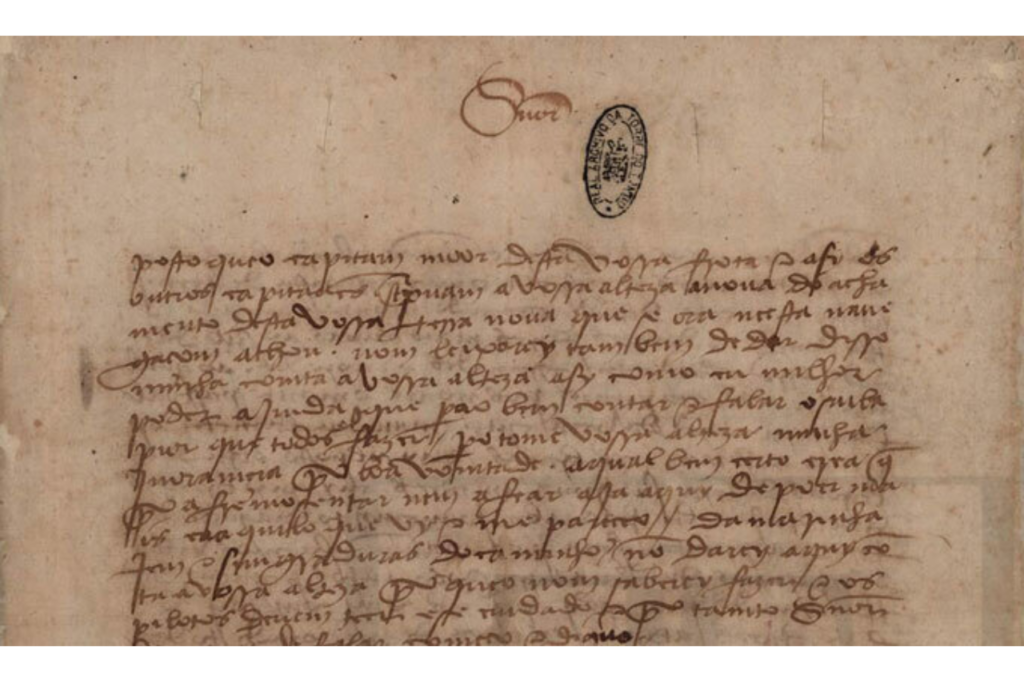 Snõr
REAL ARCHIVO DA TORRE DO TOMBO
posto queo capitam moor desta vossa frota e asy os
outros capitaães screpuam a vossa alteza a noua do acha
mento desta vossa terra noua que se ora neesta naue
gaçom achou. nom leixarey tambem de dar disso
minha comta a vossa alteza asy como eu milhor
poder ajmda que pera o bem contar e falar o saiba
pior que todos fazer / pero tome vossa alteza minha
jnoramçia por boa vomtade. aqual bem çerto crea q̃
por afremosentar nem afear aja aquy de poer ma
is ca aquilo que vy e me pareçeo / da marinha
jem e simgraduras do caminho nõ darey aquy cõ
ta a vossa alteza por queo nom saberey fazer e os
pilotos deuem teer ese cuidado e por tanto Snõr
falar começo e diguo